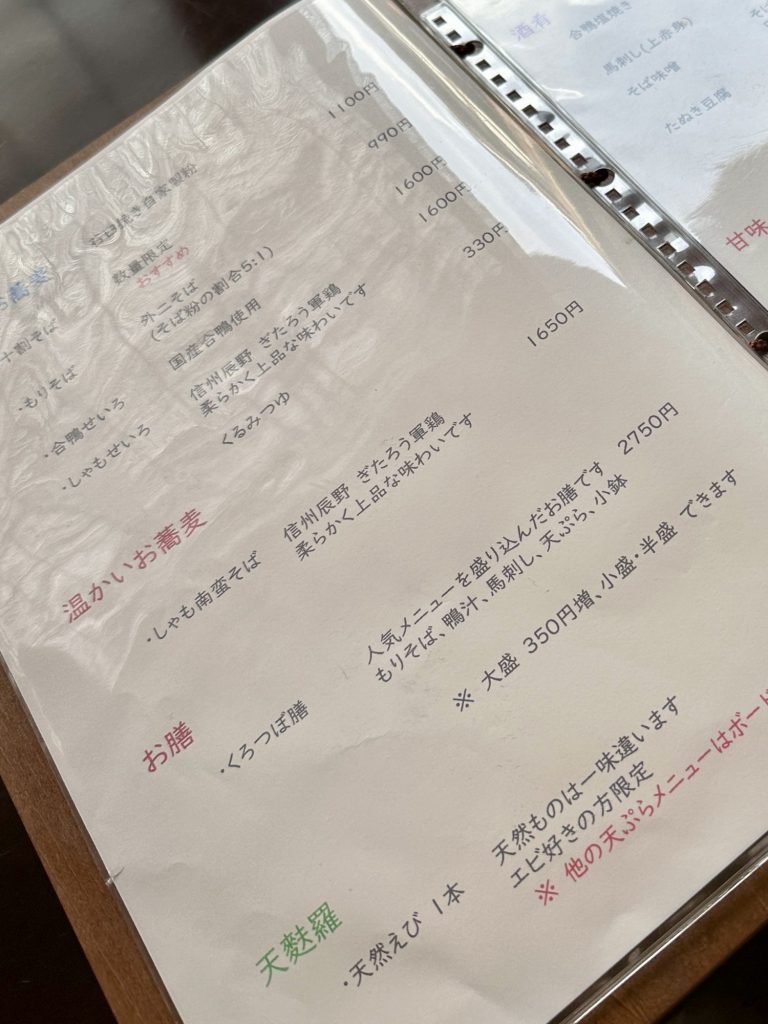 お蕎麦
石臼挽き自家製粉
十割そば 数量限定 1100円
おすすめ
・もりそば 外二そば 990円
(そば粉の割合5:1)
・合鴨せいろ 国産合鴨使用 1600円
・しゃもせいろ 信州辰野 ぎたろう軍鶏 1600円
柔らかく上品な味わいです
くるみつゆ 330円
温かいお蕎麦
・しゃも南蛮そば 信州辰野 ぎたろう軍鶏 1650円
柔らかく上品な味わいです
お膳
・くろつぼ膳 人気メニューを盛り込んだお膳です 2750円
もりそば、鴨汁、馬刺し、天ぷら、小鉢
※ 大盛 350円増、小盛・半盛 できます
天麩羅
・天然えび 1本 天然ものは一味違います
エビ好きの方限定
※ 他の天ぷらメニューはボード
酒肴
合鴨塩焼き
馬刺し(上赤身)
そば味噌
たぬき豆腐
甘味